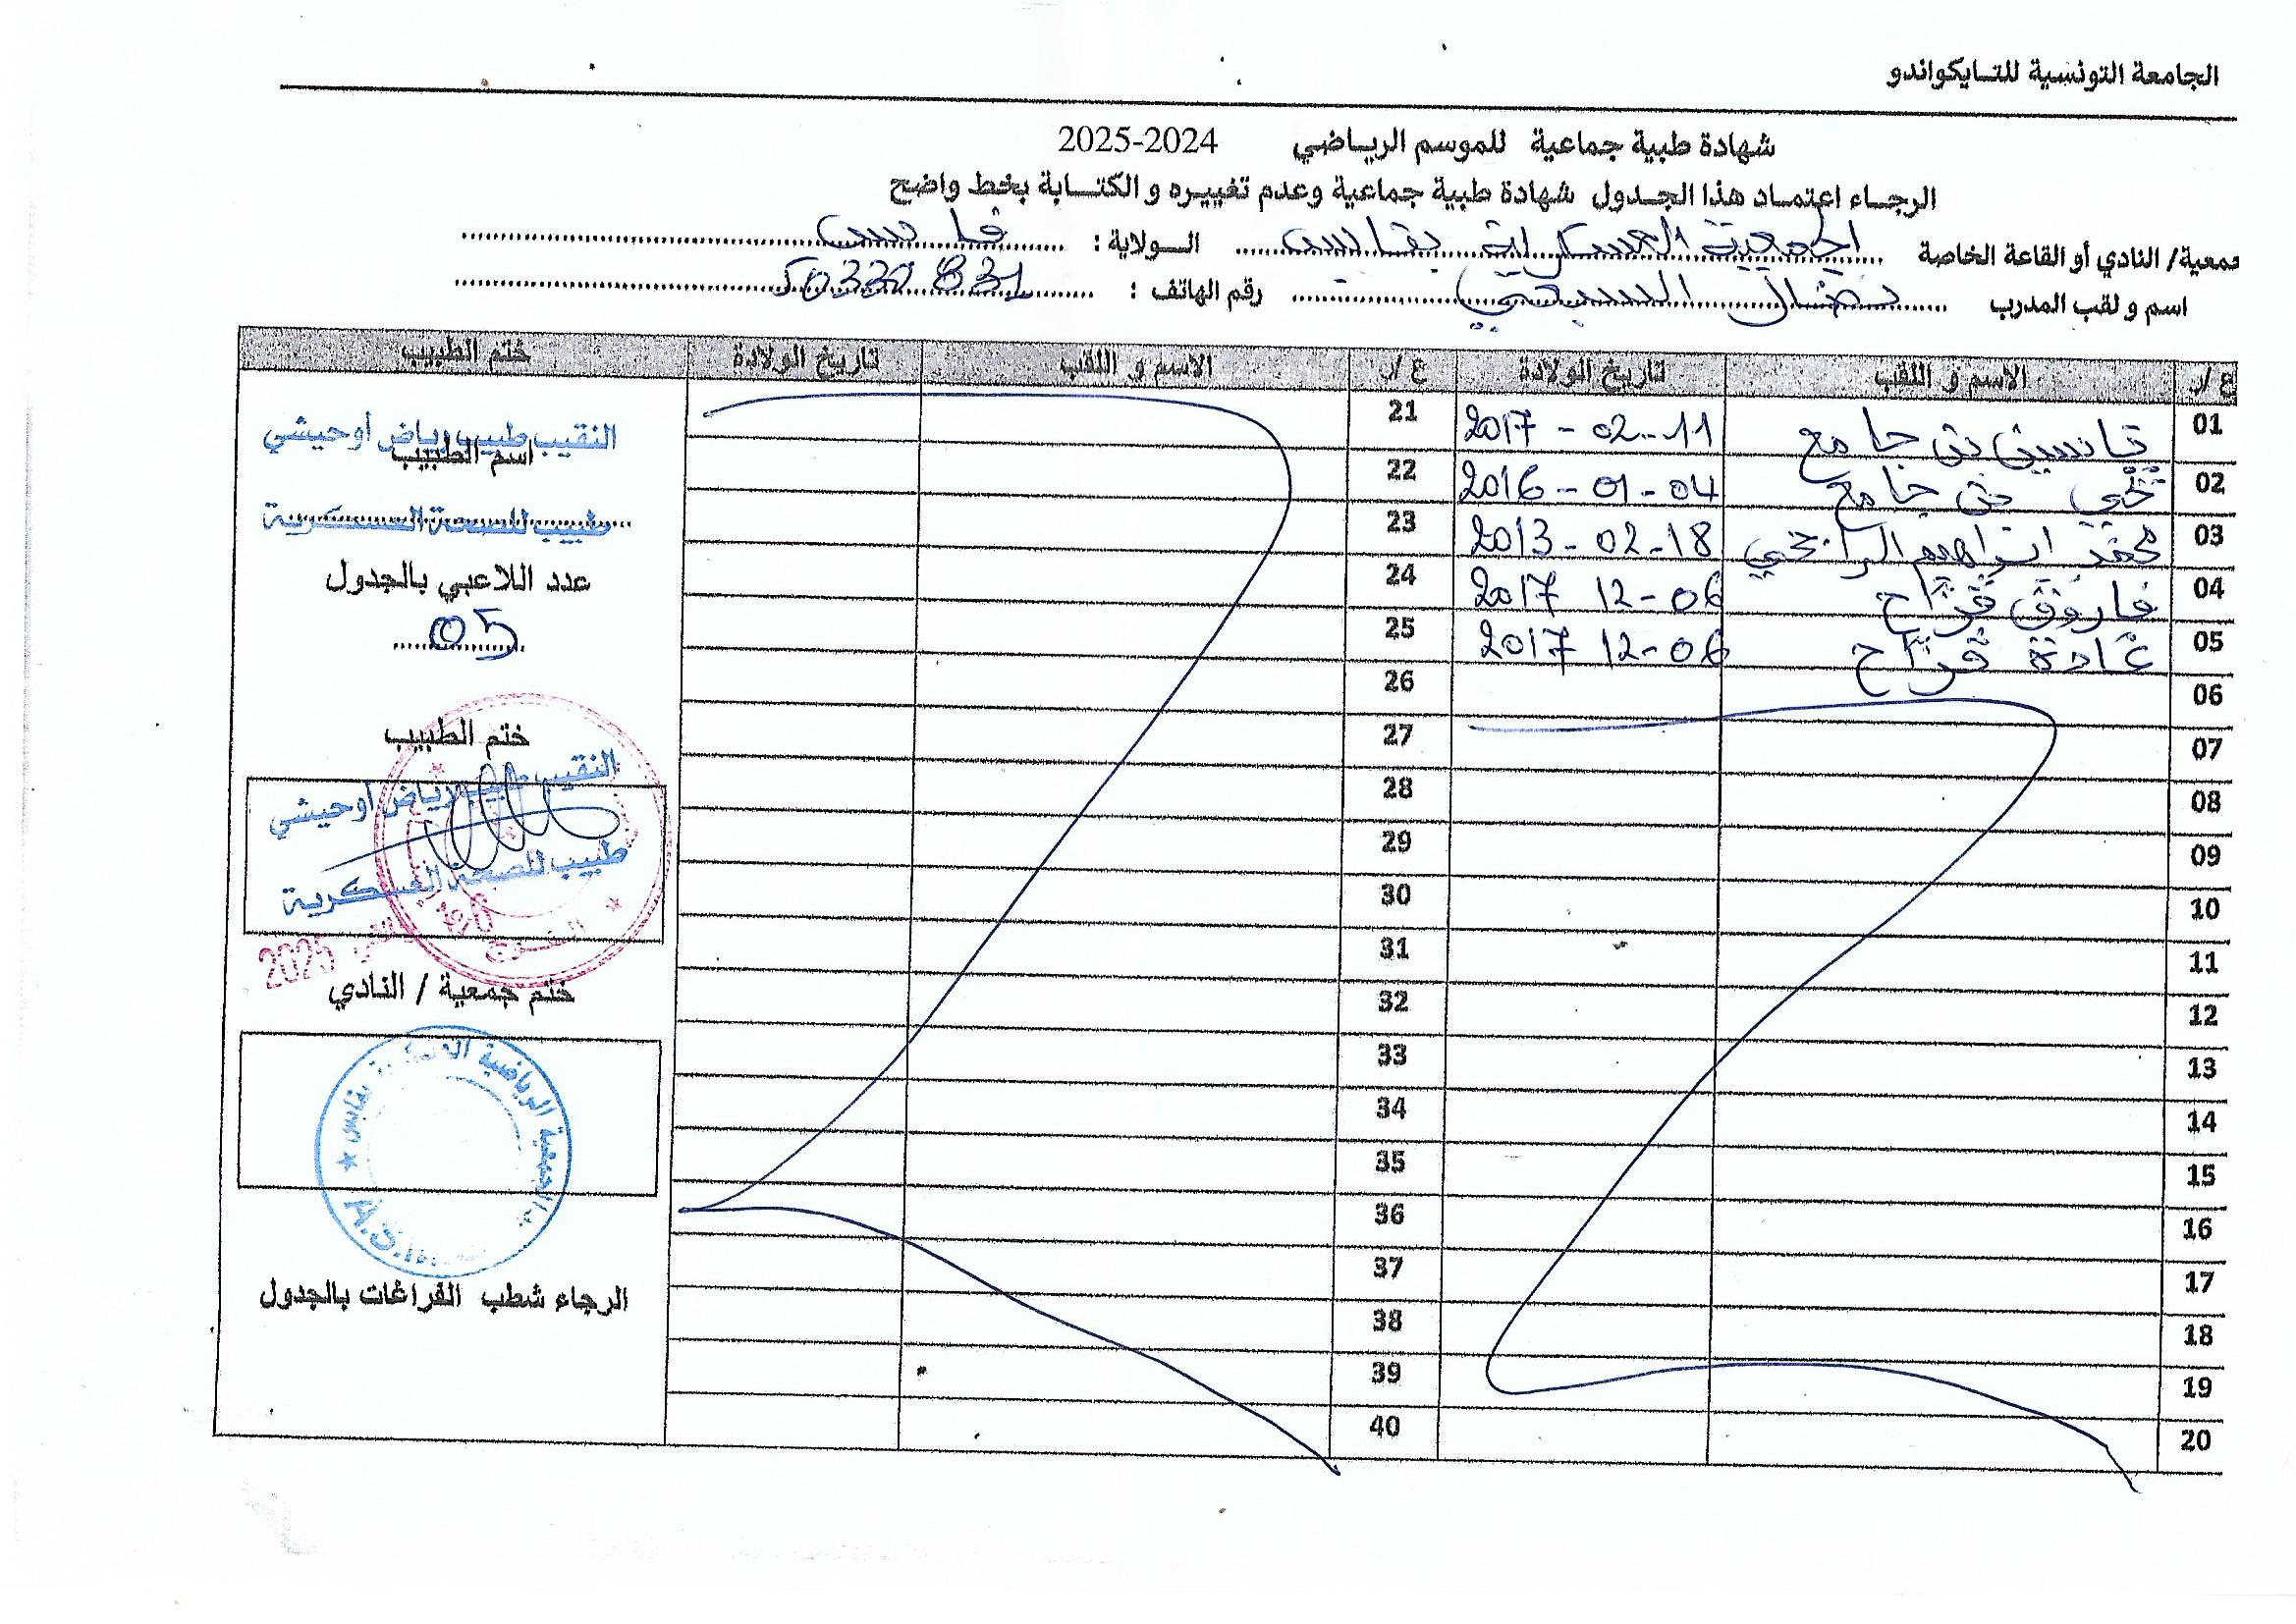 الجامعة التونسية للتايكواندو
شهادة طبية جماعية للموسم الرياضي 2024-2025
الرجاء اعتماد هذا الجدول شهادة طبية جماعية وعدم تغييره و الكتابة بخط واضح
جمعية/ النادي أو القاعة الخاصة الجمعية العسكرية بقابس الولاية : قابس
اسم و لقب المدرب نضال السبعي رقم الهاتف : 50330831
ع/ر الاسم و اللقب تاريخ الولادة ع/ر الاسم و اللقب تاريخ الولادة ختم الطبيب
01 ياسين بن جامع 2017-02-11 21
02 يحي بن جامع 2016-01-04 22
03 محمد ابراهيم الرابحي 2013-02-18 23
04 فاروق فراح 2017 12-06 24
05 غادة فراح 2017 12-06 25
06 26
07 27
08 28
09 29
10 30
11 31
12 32
13 33
14 34
15 35
16 36
17 37
18 38
19 39
20 40
النقيب طبيب رياض أوحيشي
اسم الطبيب
طبيب للصحة العسكرية
عدد اللاعبي بالجدول
05
ختم الطبيب
النقيب طبيب رياض أوحيشي
طبيب للصحة العسكرية
2025
ختم جمعية / النادي
الجمعية الرياضية العسكرية بقابس
A.S.
الرجاء شطب الفراغات بالجدول